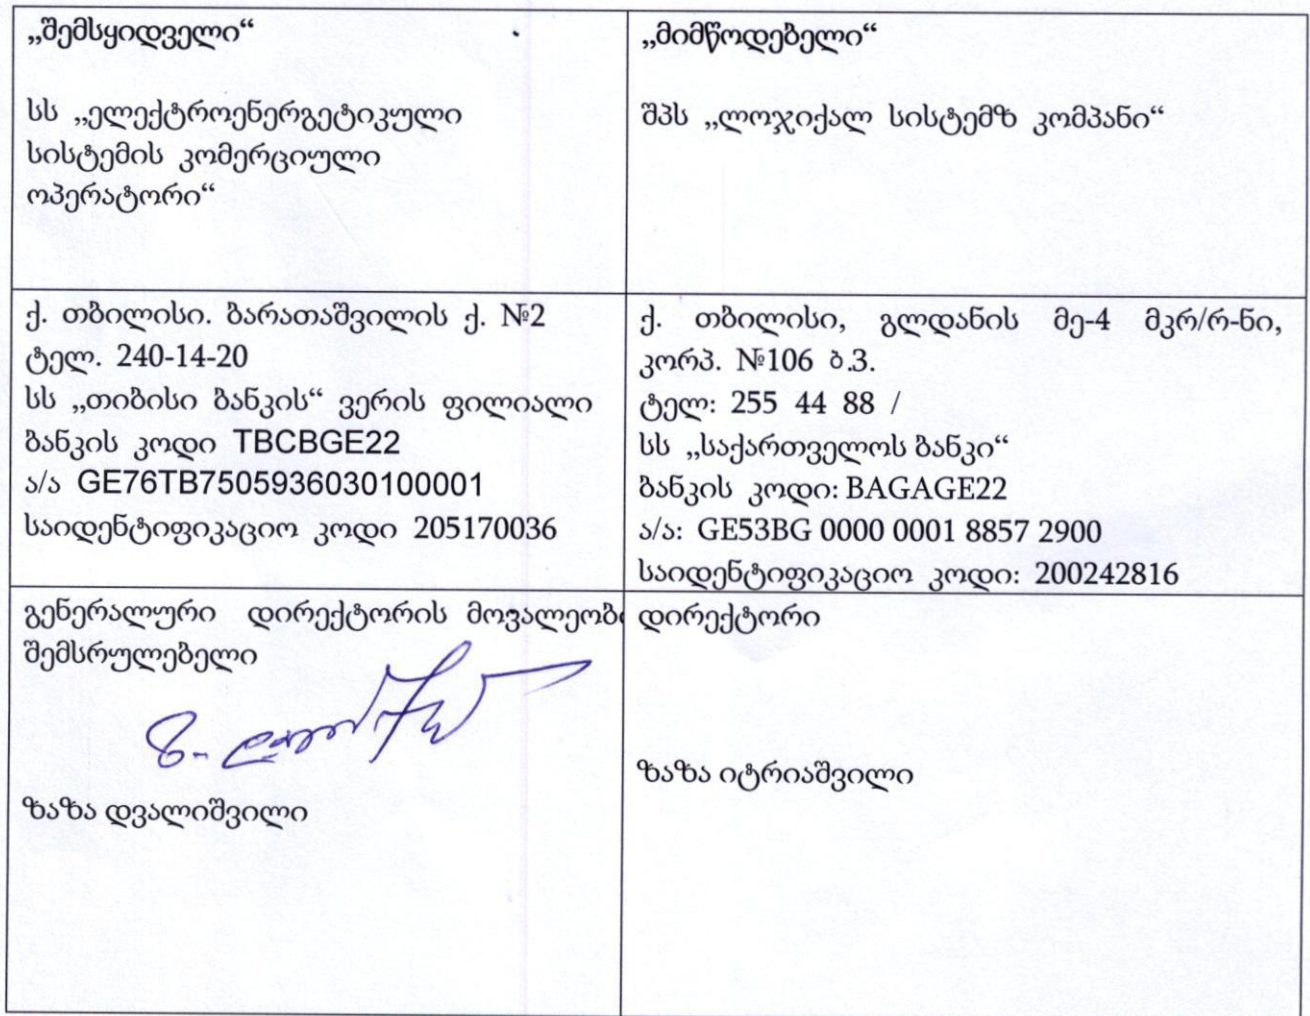 „შემსყიდველი“
სს „ელექტროენერგეტიკული
სისტემის კომერციული
ოპერატორი“
„მიმწოდებელი“
შპს „ლოჯიქალ სისტემზ კომპანი“
ქ. თბილისი. ბარათაშვილის ქ. №2
ტელ. 240-14-20
სს „თიბისი ბანკის“ ვერის ფილიალი
ბანკის კოდი TBCBGE22
ა/ა GE76TB7505936030100001
საიდენტიფიკაციო კოდი 205170036
ქ. თბილისი, გლდანის მე-4 მკრ/რ-ნი,
კორპ. №106 ბ.3.
ტელ: 255 44 88 /
სს „საქართველოს ბანკი“
ბანკის კოდი: BAGAGE22
ა/ა: GE53BG 0000 0001 8857 2900
საიდენტიფიკაციო კოდი: 200242816
გენერალური დირექტორის
შემსრულებელი
ზაზა დვალიშვილი
დირექტორი
ზაზა იტრიაშვილი